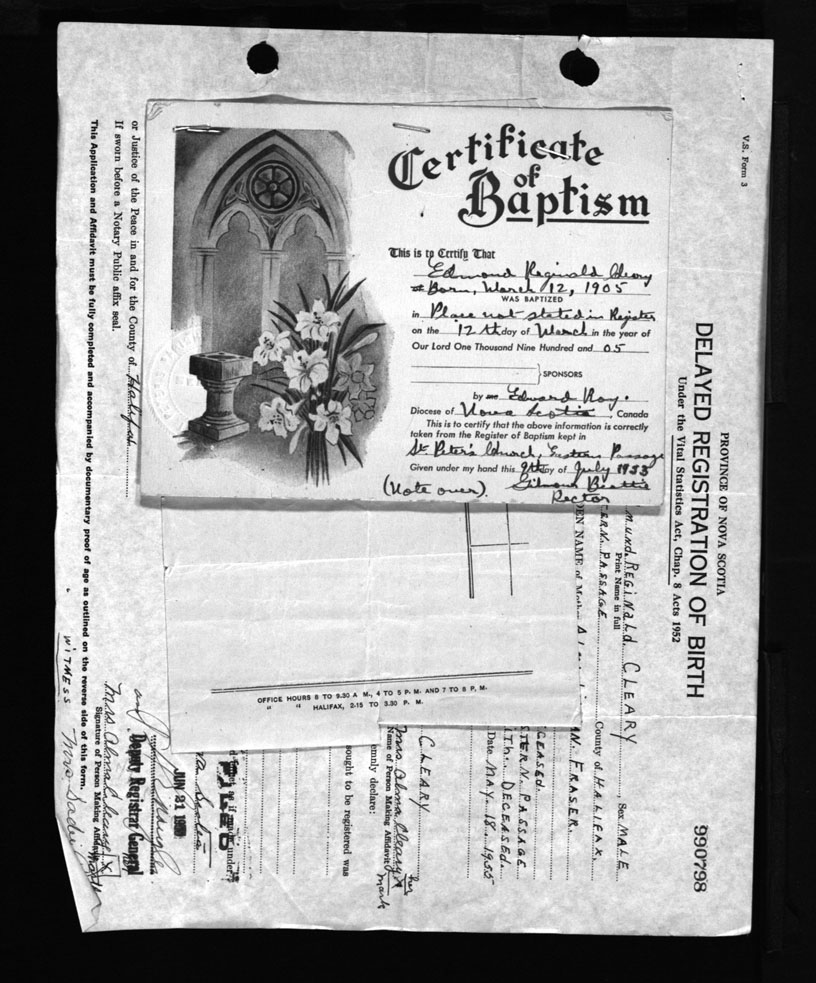 Certificate
of
Baptism
This is to Certify That
Edmond Reginald Cleary
Born, March 12, 1905
WAS BAPTIZED
in Place not stated in Register
on the 12th day of March in the year of
Our Lord One Thousand Nine Hundred and 05
SPONSORS
by Edward Roy.
Diocese of Nova Scotia, Canada
This is to certify that the above information is correctly
taken from the Register of Baptism kept in
St Peter's Church, Eastern Passage
Given under my hand this 9th day of July 1953
(Note over).
Rector
OFFICE HOURS 8 TO 9.30 A M., 4 TO 5 P. M. AND 7 TO 8 P. M.
" " HALIFAX, 2-15 TO 3.30 P. M.
V.S. Form 3
PROVINCE OF NOVA SCOTIA
DELAYED REGISTRATION OF BIRTH
Under the Vital Statistics Act, Chap. 8 Acts 1952
990798
MUND. REGINALD. CLEARY, Sex MALE
Print Name in full
ERN. PASSAGE County of HALIFAX.
DEN NAME of Mother
N. FRASER.
CEASED.
STERN. PASSAGE
ITH. DECEASED.
Date MAY. 18. 1955
CLEARY
Mrs Alma Cleary X her mark
Name of Person Making Affidavit
emnly declare:
ought to be registered was
JUN 21
Deputy Registrar General
Mrs Alma Cleary X
Signature of Person Making Affidavit
WITNESS Mrs
or Justice of the Peace in and for the County of Halifax
If sworn before a Notary Public affix seal.
This Application and Affidavit must be fully completed and accompanied by documentary proof of age as outlined on the reverse side of this form.